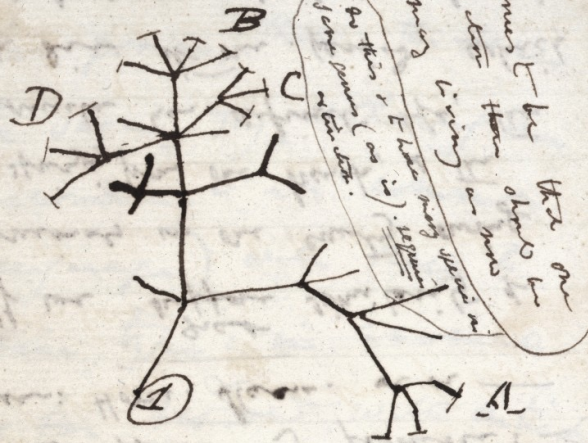 B
C
D
A
1
be that one
then should be
living as now
do this & to have many species in
same genus (as is). requires
extinction.